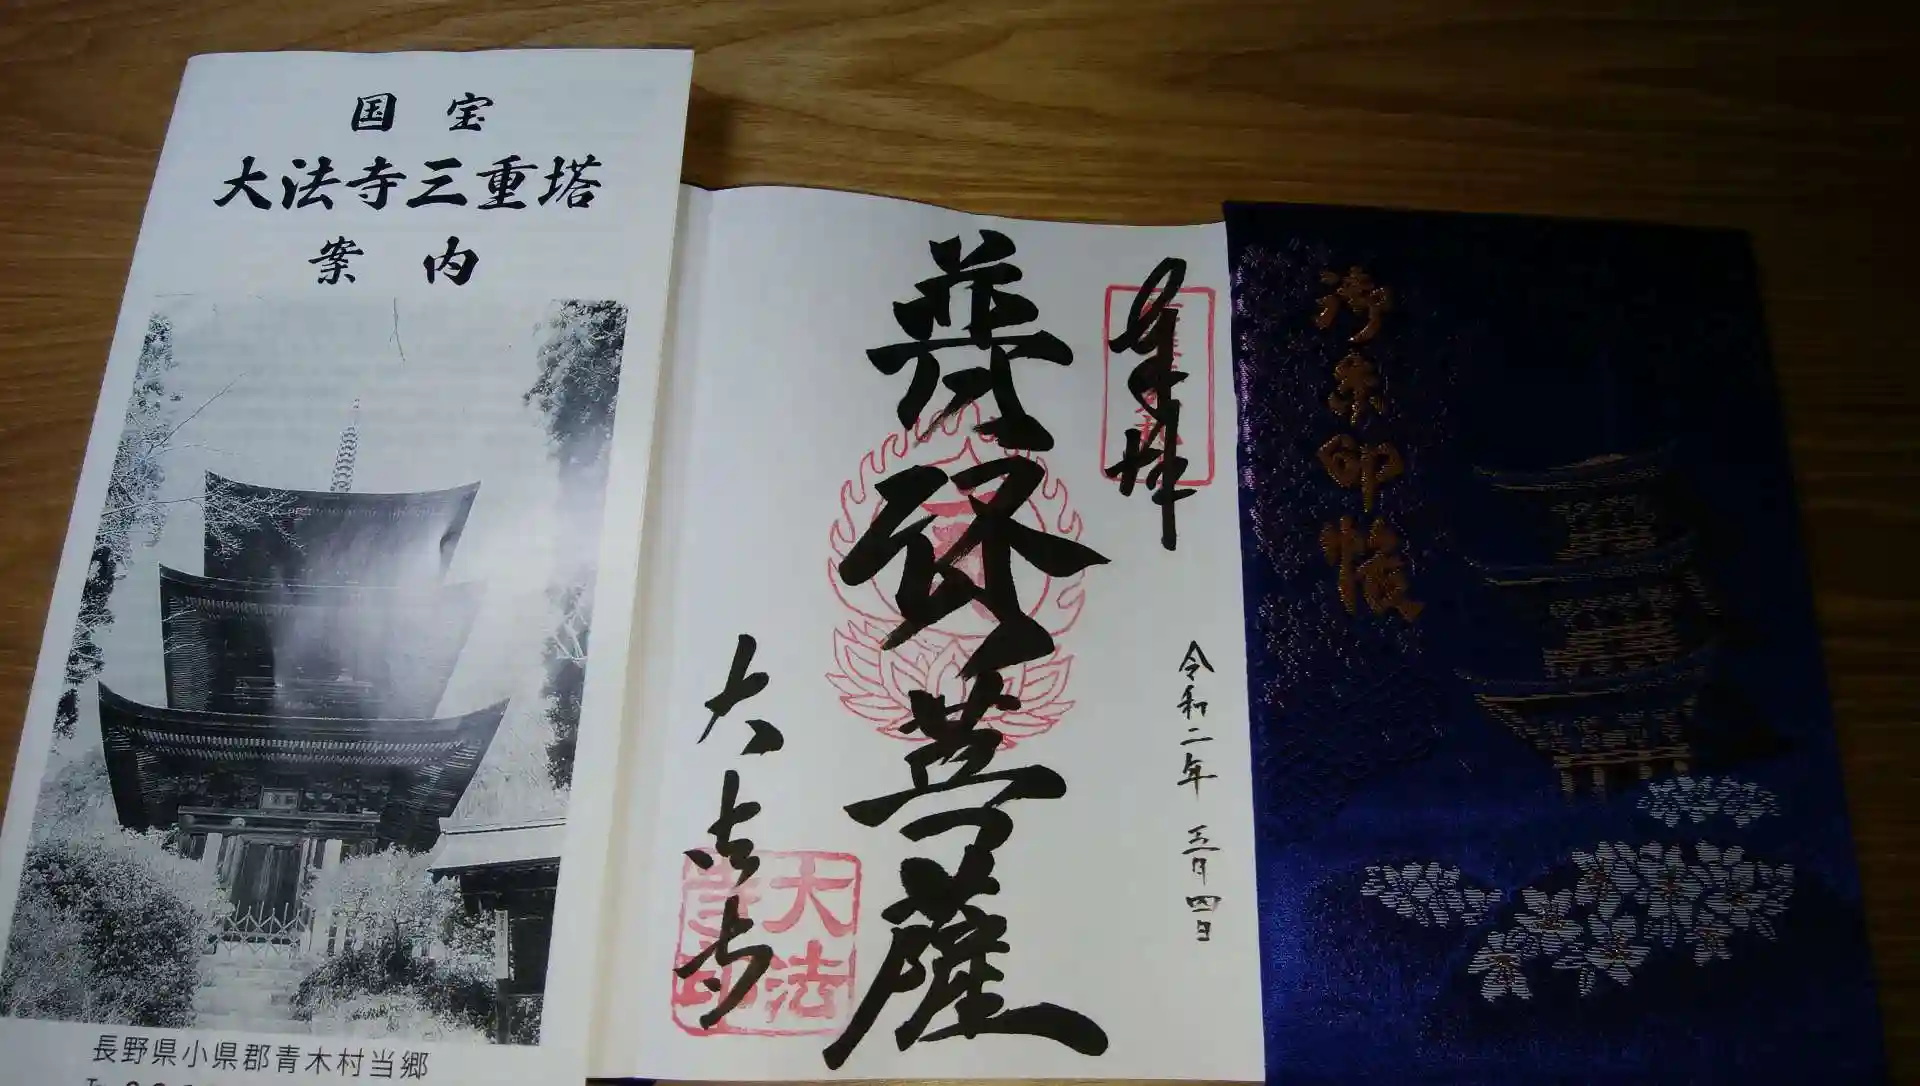 国宝
大法寺三重塔
案内
長野県小県郡青木村当郷
奉拝
令和二年 五月四日
菩薩
大法寺
大法寺印
御朱印帳